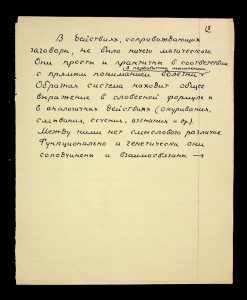 В действиях, сопровождающих
заговоры, не было ничего магического.
Они просты и практичны в соответствии
с прямым пониманием болезни
Образная система находит общее
выражение в словесной формуле и
в аналогичных действиях (окуривания,
смывания, сечения, изгнания и др.).
Между ними нет смыслового различия.
Функционально и генетически они
соподчинены и взаимосвязаны →